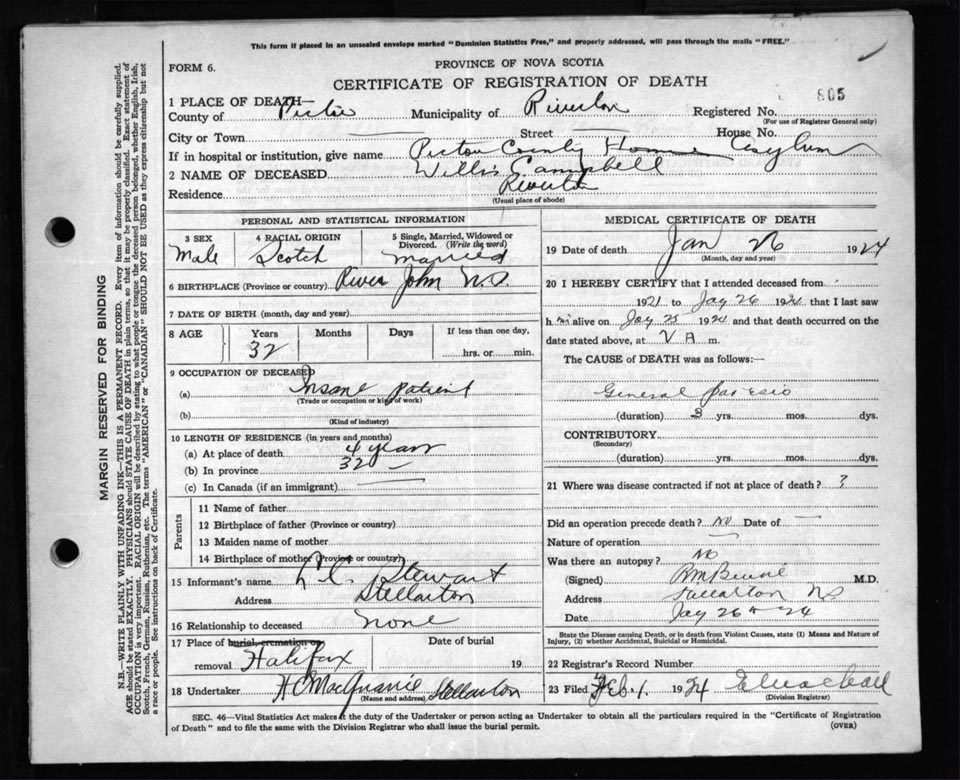 This form if placed in an unsealed envelope marked "Dominion Statistics Free," and properly addressed, will pass through the mails "FREE."
FORM 6.
PROVINCE OF NOVA SCOTIA
CERTIFICATE OF REGISTRATION OF DEATH
805
1 PLACE OF DEATH—
County of Pictou Municipality of Riverton Registered No.
(For use of Registrar General only)
City or Town — Street — House No.
If in hospital or institution, give name Pictou County Home Asylum
2 NAME OF DECEASED Willis Campbell
Residence Riverton
(Usual place of abode)
PERSONAL AND STATISTICAL INFORMATION
3 SEX 4 RACIAL ORIGIN 5 Single, Married, Widowed or Divorced. (Write the word)
Male Scotch married
6 BIRTHPLACE (Province or country) River John N.S.
7 DATE OF BIRTH (month, day and year)
8 AGE Years Months Days If less than one day,
32 hrs. or min.
9 OCCUPATION OF DECEASED
(a) Insane patient
(Trade or occupation or kind of work)
(b)
(Kind of industry)
10 LENGTH OF RESIDENCE (in years and months)
(a) At place of death 4 years
(b) In province 32 —
(c) In Canada (if an immigrant)
Parents
11 Name of father
12 Birthplace of father (Province or country)
13 Maiden name of mother
14 Birthplace of mother (Province or country)
15 Informant's name Stewart
Address Stellarton
16 Relationship to deceased none
17 Place of burial, cremation or Date of burial
removal Halifax 19
18 Undertaker H C MacQuarrie Stellarton
(Name and address)
MEDICAL CERTIFICATE OF DEATH
19 Date of death Jan 26 1924
(Month, day and year)
20 I HEREBY CERTIFY that I attended deceased from
1921 to Jay 26 1924 that I last saw
h im alive on Jay 25 1924 and that death occurred on the
date stated above, at V A m.
The CAUSE OF DEATH was as follows:
General paresis
(duration) 3 yrs. mos. dys.
CONTRIBUTORY
(Secondary)
(duration) yrs. mos. dys.
21 Where was disease contracted if not at place of death? ?
Did an operation precede death? No Date of —
Nature of operation —
Was there an autopsy? No
(Signed) M.D.
Address Stellarton NS
Date Jay 26th 24
State the Disease causing Death, or in death from Violent Causes, state (1) Means and Nature of
Injury, (2) whether Accidental, Suicidal or Homicidal.
22 Registrar's Record Number
23 Filed Feb 1. 1924
(Division Registrar)
SEC. 46—Vital Statistics Act makes it the duty of the Undertaker or person acting as Undertaker to obtain all the particulars required in the "Certificate of Registration
of Death" and to file the same with the Division Registrar who shall issue the burial permit.
(OVER)
MARGIN RESERVED FOR BINDING
N.B.—WRITE PLAINLY WITH UNFADING INK—THIS IS A PERMANENT RECORD. Every item of information should be carefully supplied.
AGE should be stated EXACTLY. PHYSICIANS should STATE CAUSE OF DEATH in plain terms, so that it may be properly classified. Exact statement of
OCCUPATION is very important. RACIAL ORIGIN will be described by stating to what people or tongue the deceased person belonged, whether English, Irish,
Scotch, French, German, Russian, Ruthenian, etc. The terms "AMERICAN" or "CANADIAN" SHOULD NOT BE USED as they express citizenship but not
a race or people. See instructions on back of Certificate.